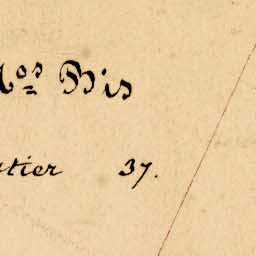 Nos Bis
tier 37.